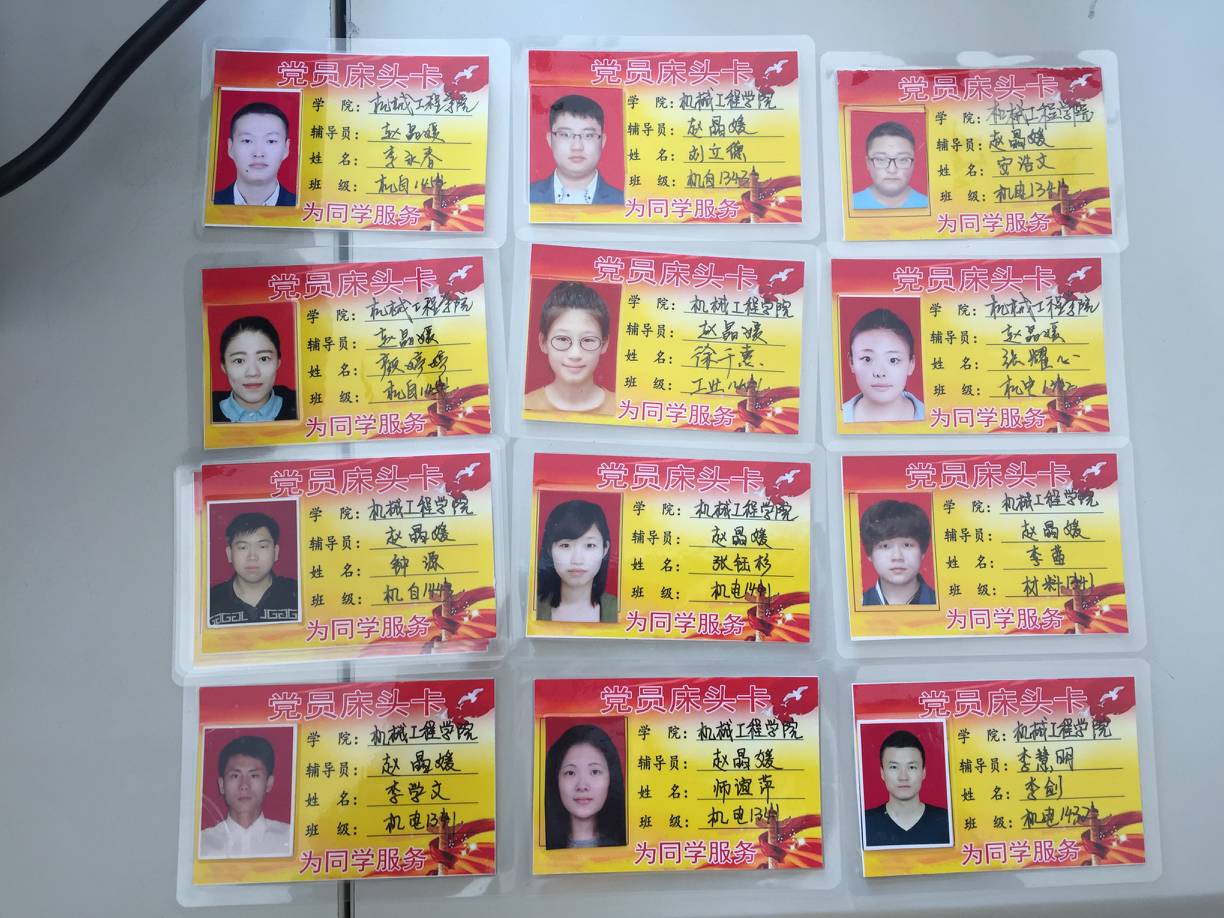 党员床头卡
学 院：机械工程学院
辅导员：赵晶媛
姓 名：李永春
班 级：机自144
为同学服务
党员床头卡
学 院：机械工程学院
辅导员：赵晶媛
姓 名：刘立德
班 级：机自134
为同学服务
党员床头卡
学 院：机械工程学院
辅导员：赵晶媛
姓 名：安浩文
班 级：机电1341
为同学服务
党员床头卡
学 院：机械工程学院
辅导员：赵晶媛
姓 名：颜婷婷
班 级：机自144
为同学服务
党员床头卡
学 院：机械工程学院
辅导员：赵晶媛
姓 名：徐千惠
班 级：工业1441
为同学服务
党员床头卡
学 院：机械工程学院
辅导员：赵晶媛
姓 名：张耀心
班 级：机电
为同学服务
党员床头卡
学 院：机械工程学院
辅导员：赵晶媛
姓 名：钟源
班 级：机自144
为同学服务
党员床头卡
学 院：机械工程学院
辅导员：赵晶媛
姓 名：张钰杉
班 级：机电1441
为同学服务
党员床头卡
学 院：机械工程学院
辅导员：赵晶媛
姓 名：李
班 级：材料1341
为同学服务
党员床头卡
学 院：机械工程学院
辅导员：赵晶媛
姓 名：李学文
班 级：机电1341
为同学服务
党员床头卡
学 院：机械工程学院
辅导员：赵晶媛
姓 名：师谊萍
班 级：机电1341
为同学服务
党员床头卡
学 院：机械工程学院
辅导员：李慧明
姓 名：李剑
班 级：机电1432
为同学服务